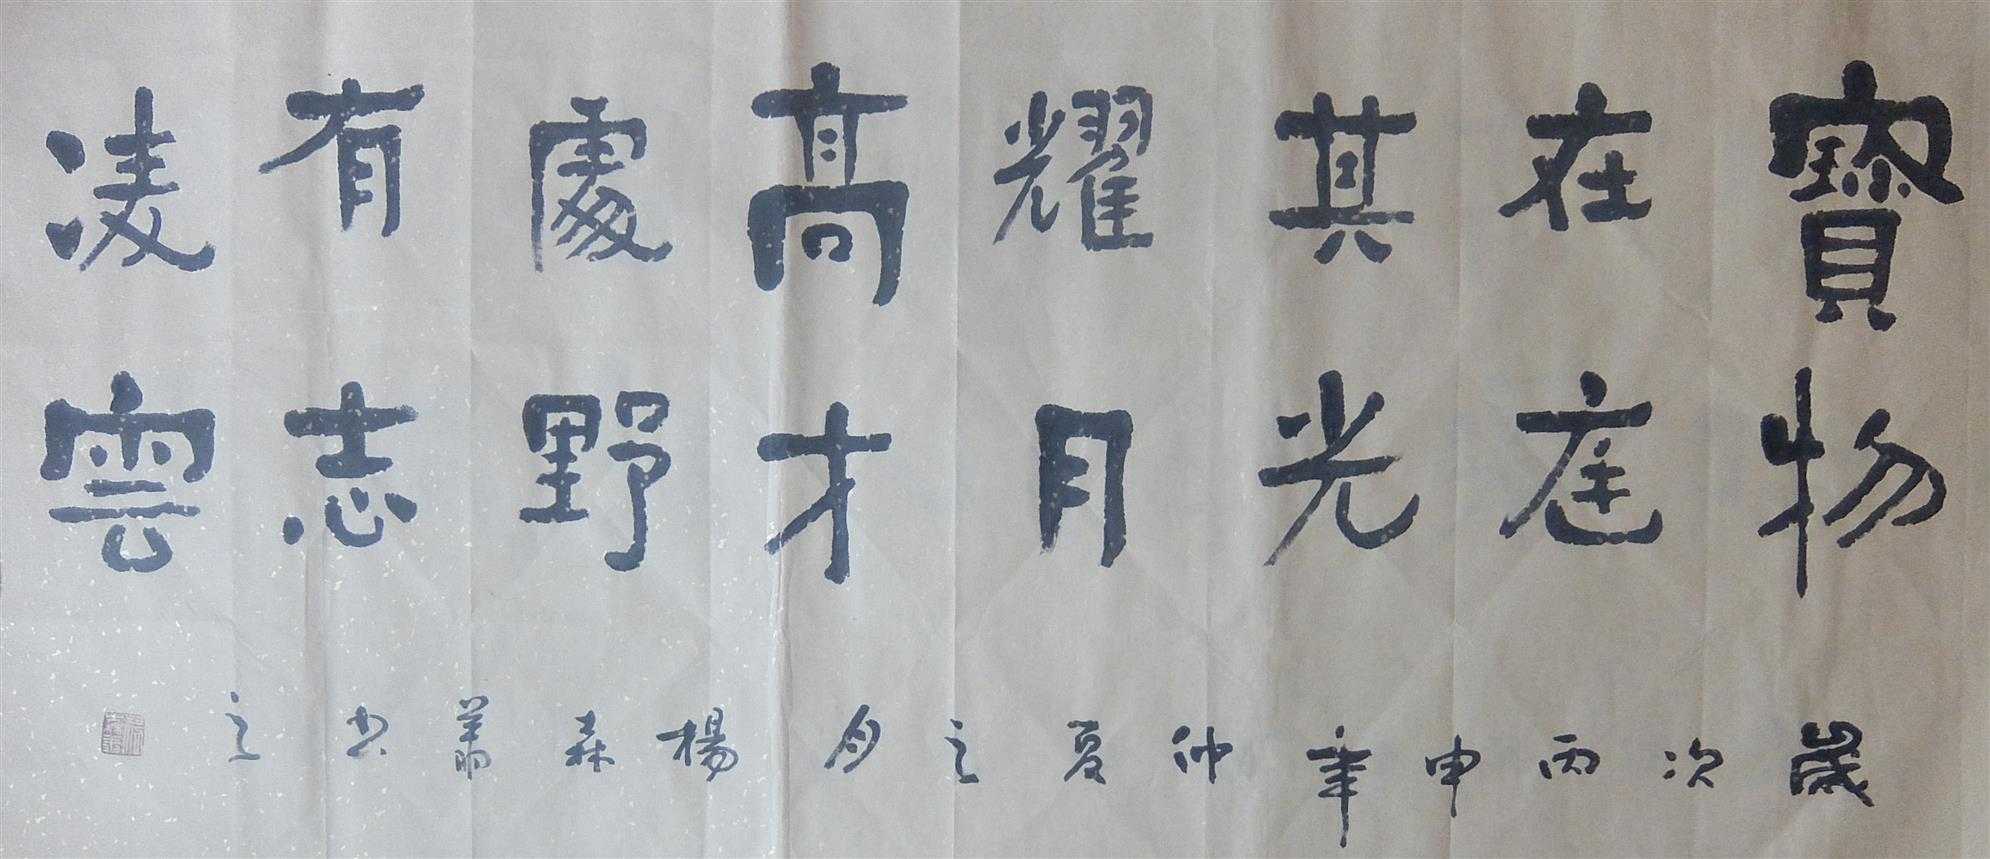 寶物
在庭
其光
耀月
高才
處野
有志
凌雲
歲次丙申年仲夏之月楊森萧書之